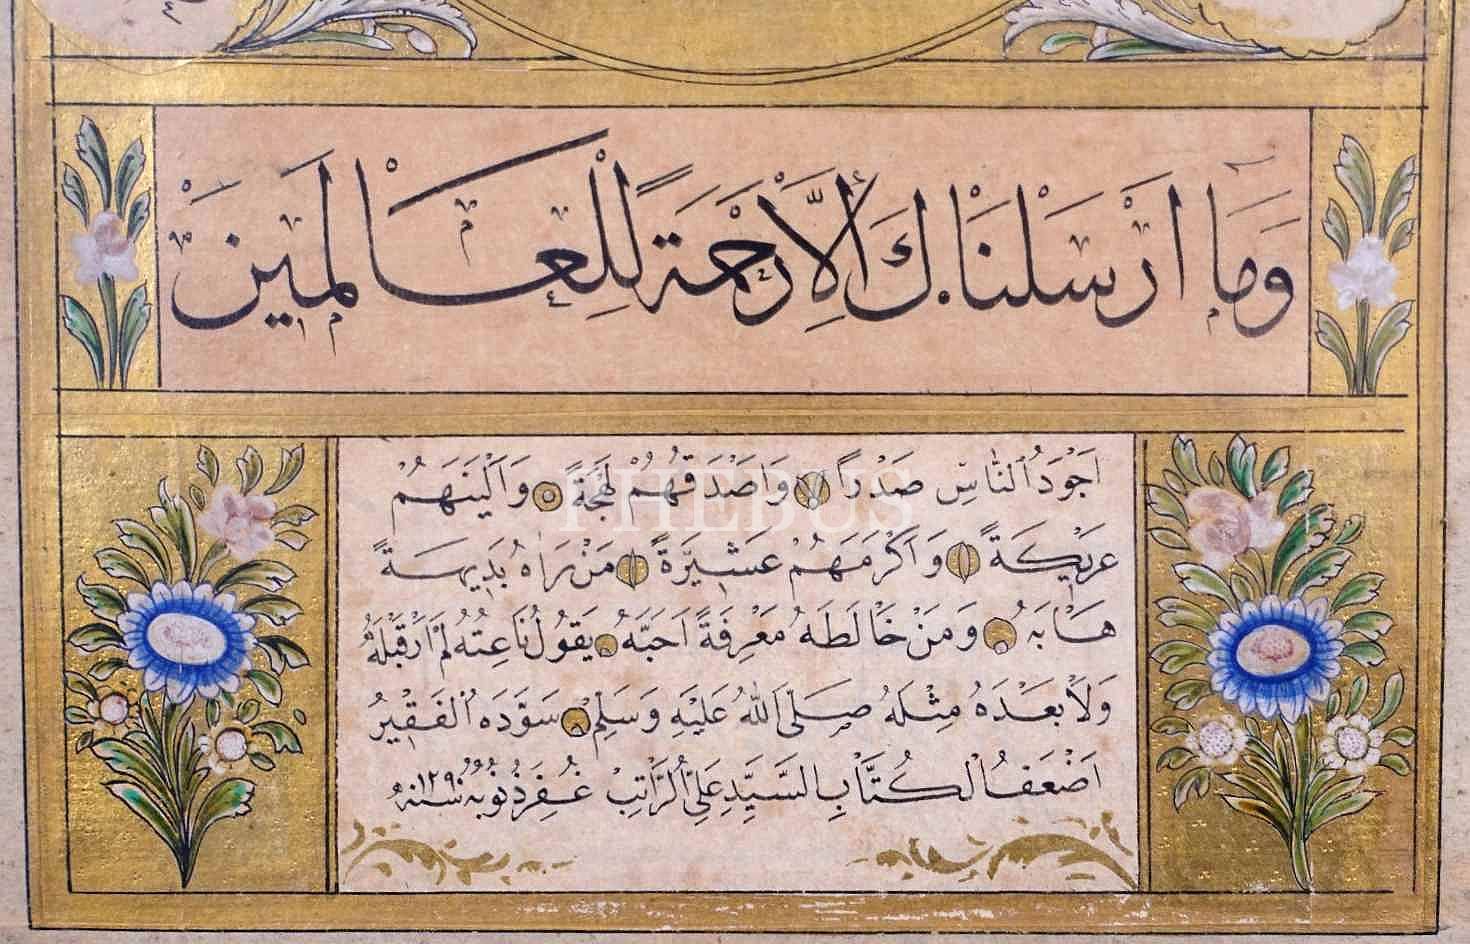 وَمَا اَرْسَلْنَاكَ اِلَّا رَحْمَةً لِلْعَالَمِينَ
اَجْوَدُ النَّاسِ صَدْرًا وَاَصْدَقُهُمْ لَهْجَةً وَاَلْيَنَهُمْ
عَرِيكَةً وَاَكْرَمَهُمْ عَشِيرَةً مَنْ رَاٰهُ بَدِيهَةً
هَابَهُ وَمَنْ خَالَطَهُ مَعْرِفَةً اَحَبَّهُ يَقُولُ نَاعِتُهُ لَمْ اَرَ قَبْلَهُ
وَلَا بَعْدَهُ مِثْلَهُ صَلَّى اللهُ عَلَيْهِ وَسَلَّمْ سَوَّدَهُ الْفَقِيرُ
اَضْعَفُ الْكُتَّابِ السَّيِّدِ عَلِي الرَّاتِبْ غُفِرَ ذُنُوبُهُ سنه ١٢٩٠
PHEBUS